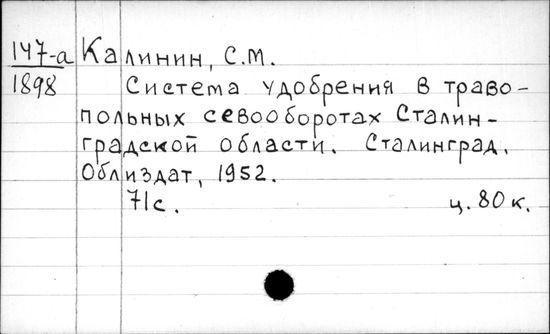 147-а Калинин, С.М.
1898 Система удобрения в траво-
польных севооборотах Сталин-
градской области. Сталинград,
Облиздат, 1952.
71с. ц. 80 к.